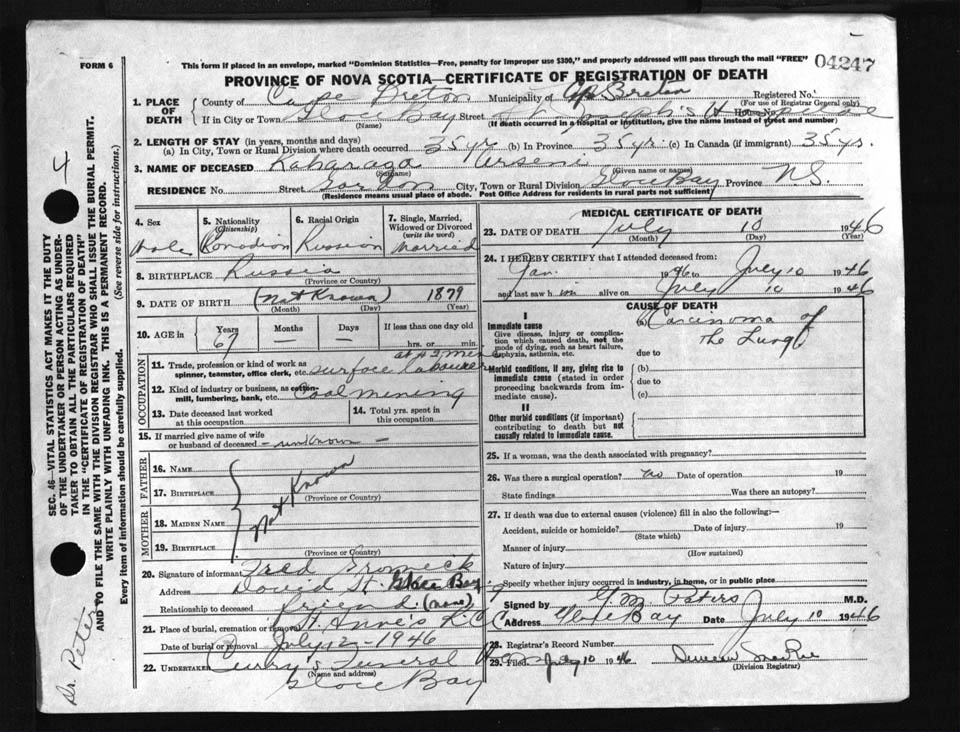 FORM 6
This form if placed in an envelope, marked "Dominion Statistics—Free, penalty for improper use $300," and properly addressed will pass through the mail "FREE"
04247
PROVINCE OF NOVA SCOTIA—CERTIFICATE OF REGISTRATION OF DEATH
1. PLACE OF DEATH
County of Cape Breton Municipality of Cape Breton Registered No.
(For use of Registrar General only)
If in City or Town Glace Bay St. Joseph's House No.
(Name) (If death occurred in a hospital or institution, give the name instead of street and number)
2. LENGTH OF STAY (in years, months and days)
(a) In City, Town or Rural Division where death occurred 35 yr (b) In Province 35 yr. (c) In Canada (if immigrant) 35 yrs.
3. NAME OF DECEASED Kaharago Arseni
(Surname) (Given name or names)
RESIDENCE No. Street City, Town or Rural Division Glace Bay Province N.S.
(Residence means usual place of abode. Post Office Address for residents in rural parts not sufficient)
4. Sex
Male
5. Nationality (Citizenship)
Canadian
6. Racial Origin
Russian
7. Single, Married, Widowed or Divorced (write the word)
Married
8. BIRTHPLACE Russia
(Province or Country)
9. DATE OF BIRTH (Not Known) 1879
(Month) (Day) (Year)
10. AGE in
Years
67
Months
—
Days
—
If less than one day old
hrs. or min.
OCCUPATION
11. Trade, profession or kind of work as spinner, teamster, office clerk, etc. surface labourer at #2 mine
12. Kind of industry or business, as cotton-mill, lumbering, bank, etc. Coal mining
13. Date deceased last worked at this occupation
14. Total yrs. spent in this occupation
15. If married give name of wife or husband of deceased — unknown —
FATHER
16. NAME
17. BIRTHPLACE
(Province or Country)
Not Known
MOTHER
18. MAIDEN NAME
19. BIRTHPLACE
(Province or Country)
20. Signature of informant Fred
Address David St. Glace Bay
Relationship to deceased friend (none)
21. Place of burial, cremation or removal St Anne's R.C.
Date of burial or removal July 12 - 1946
22. UNDERTAKER Curry's Funeral Home
(Name and address)
Glace Bay
MEDICAL CERTIFICATE OF DEATH
23. DATE OF DEATH July 10 1946
(Month) (Day) (Year)
24. I HEREBY CERTIFY that I attended deceased from:
Jan. 1946 to July 10 1946
and last saw him alive on July 10 1946
CAUSE OF DEATH
I
Immediate cause
Give disease, injury or complication which caused death, not the mode of dying, such as heart failure, asphyxia, asthenia, etc.
(a) Carcinoma of the Lung
due to
Morbid conditions, if any, giving rise to immediate cause (stated in order proceeding backwards from immediate cause)
(b)
due to
(c)
II
Other morbid conditions (if important) contributing to death but not causally related to immediate cause.
25. If a woman, was the death associated with pregnancy?
26. Was there a surgical operation? no Date of operation 19
State findings Was there an autopsy?
27. If death was due to external causes (violence) fill in also the following:—
Accident, suicide or homicide? Date of injury 19
(State which)
Manner of injury
(How sustained)
Nature of injury
Specify whether injury occurred in industry, in home, or in public place
Signed by G.M. Peters M.D.
Address Glace Bay Date July 10 1946
28. Registrar's Record Number
29. Filed July 10 1946 Duncan MacRae
(Division Registrar)
SEC. 46—VITAL STATISTICS ACT MAKES IT THE DUTY
OF THE UNDERTAKER OR PERSON ACTING AS UNDER-
TAKER TO OBTAIN ALL THE PARTICULARS REQUIRED
IN THE "CERTIFICATE OF REGISTRATION OF DEATH"
AND TO FILE THE SAME WITH THE DIVISION REGISTRAR WHO SHALL ISSUE THE BURIAL PERMIT.
WRITE PLAINLY WITH UNFADING INK. THIS IS A PERMANENT RECORD.
Every item of information should be carefully supplied. (See reverse side for instructions.)
4
Dr. Peters